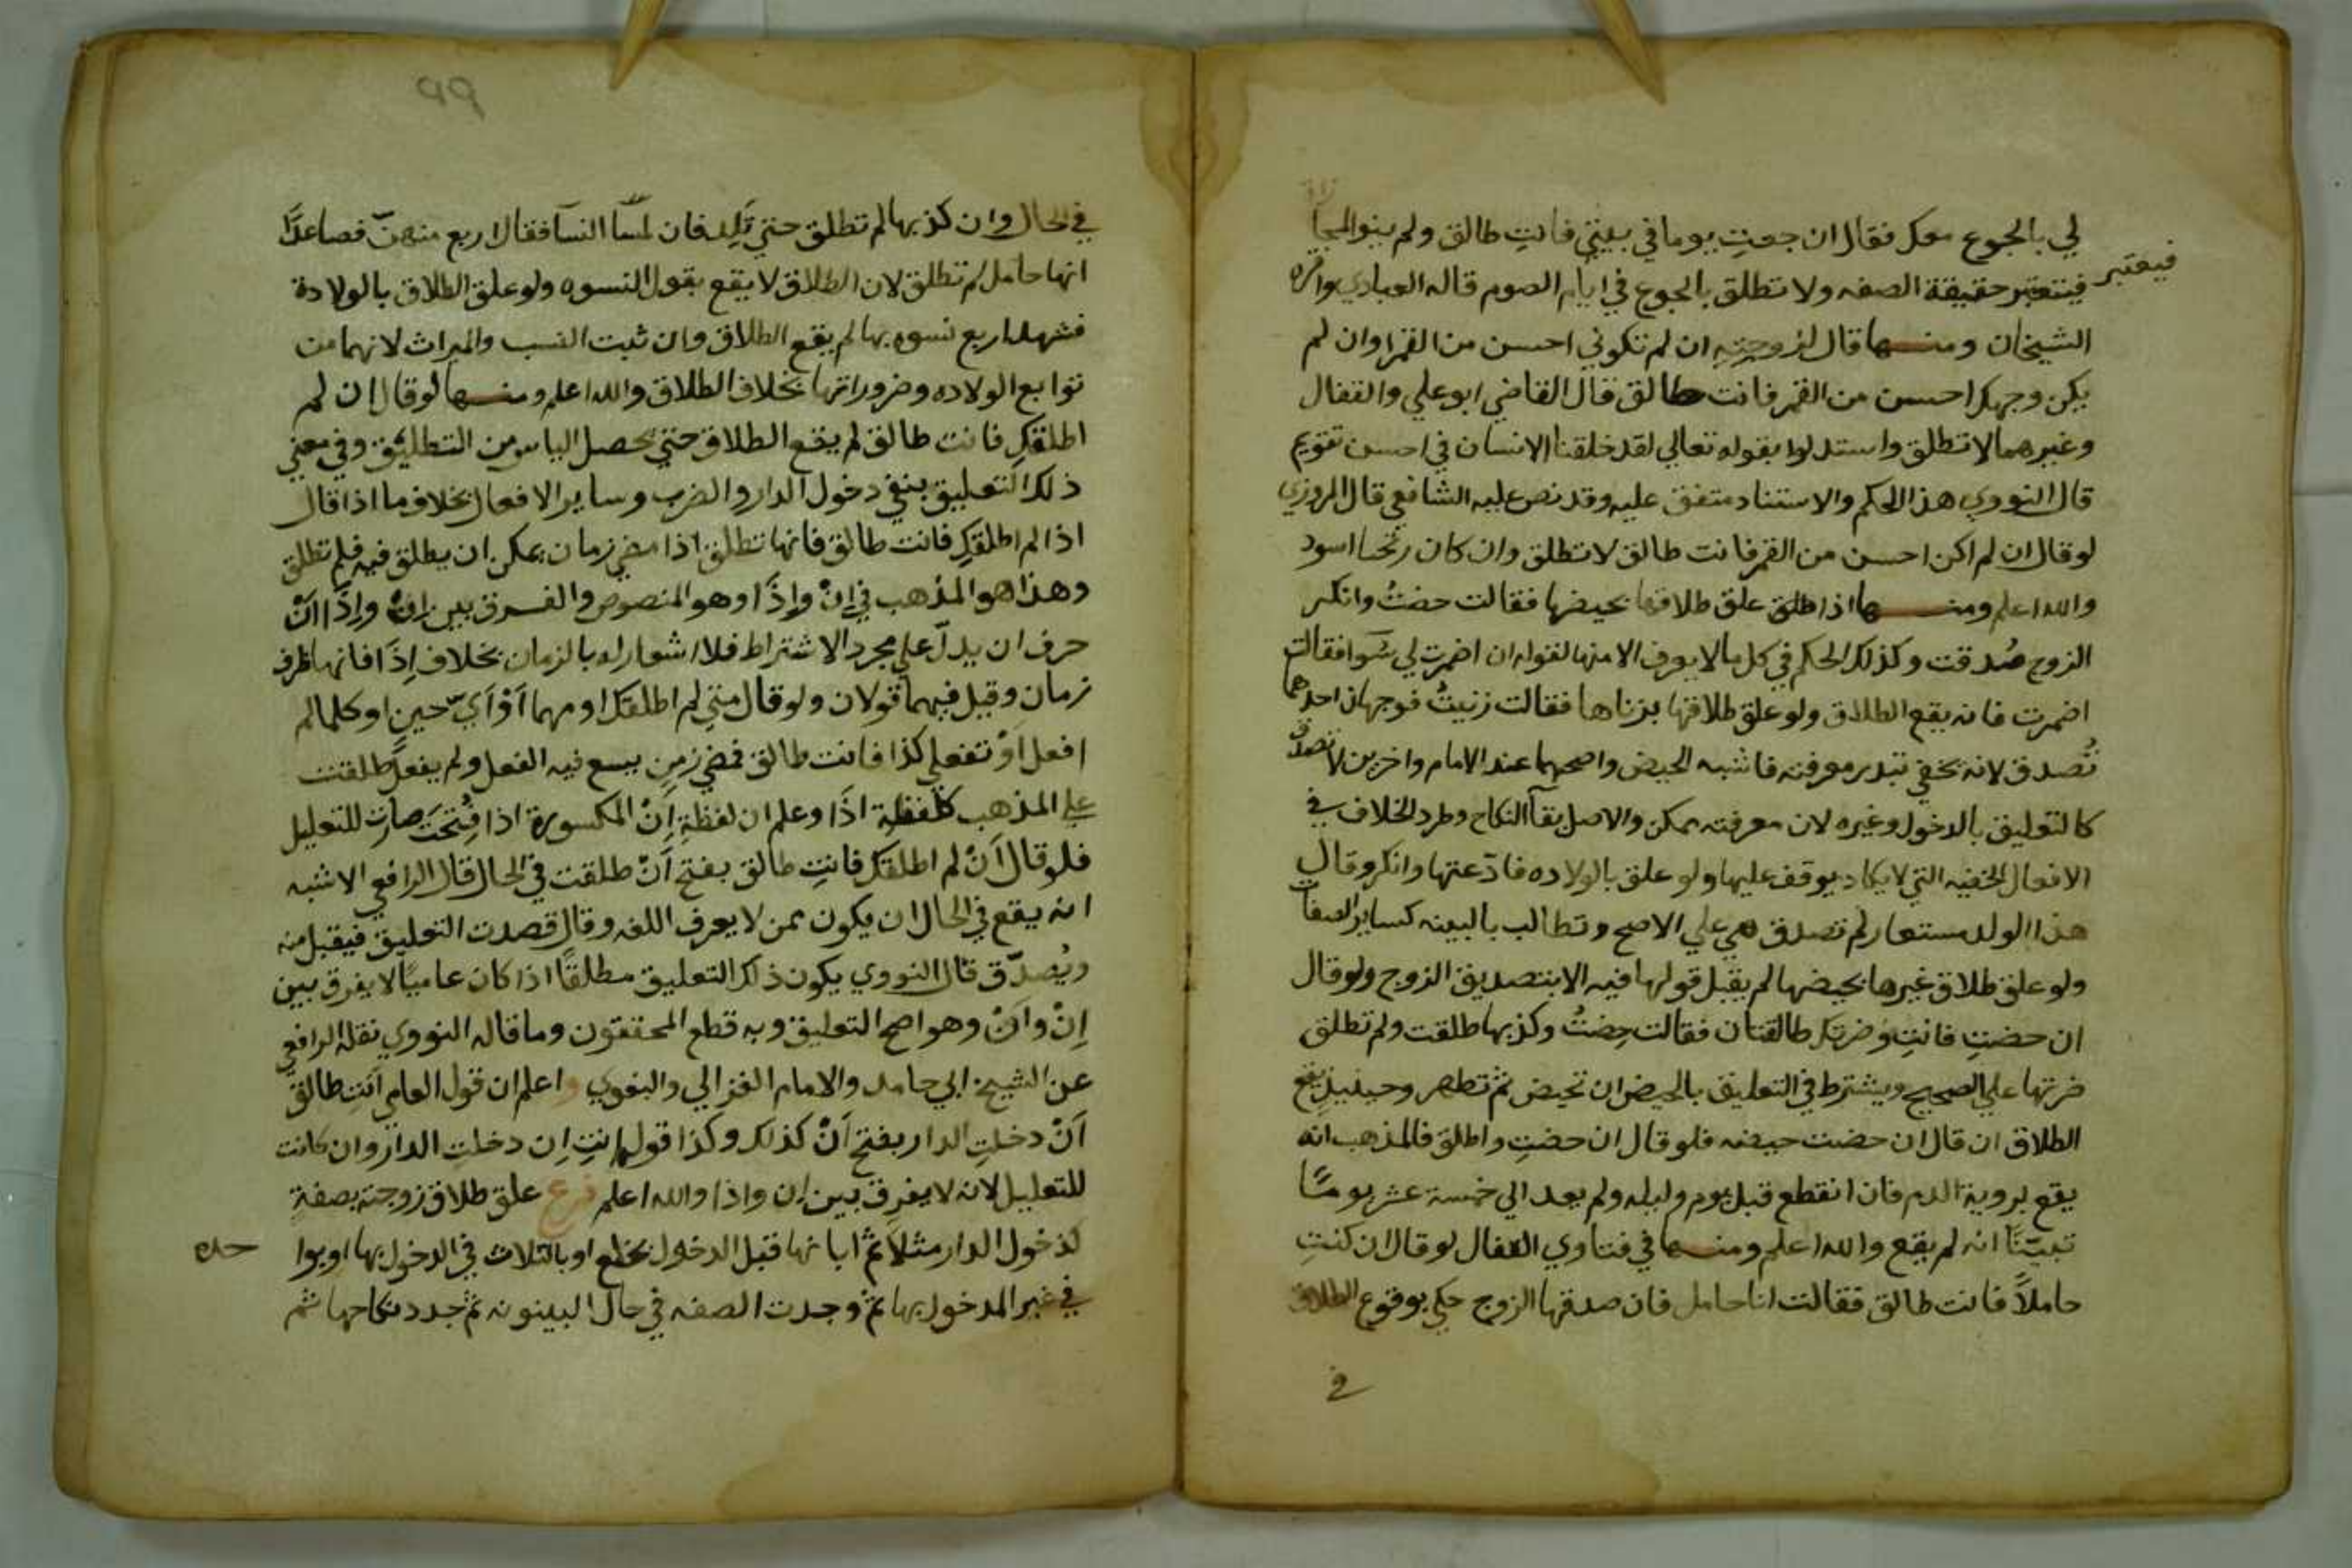 لي بالجوع معك فقال ان جعتِ يوما في بيتي فانتِ طالق ولم ينو المجا
فيعتبر
فيتعتبر حقيقة الصفه ولا تطلق بالجوع في ايام الصوم قاله العبادي واقره
الشيخان ومنها قال لزوجته ان لم تكوني احسن من القمر او ان لم
يكن وجهك احسن من القمر فانت طالق قال القاضي ابو علي والقفال
وغيرهما لا تطلق واستدلوا بقوله تعالي لقد خلقنا الانسان في احسن تقويم
قال النووي هذا الحكم والاستناد متفق عليه وقد نص عليه الشافعي قال المروزي
لو قال ان لم اكن احسن من القمر فانت طالق لا تطلق وان كان زنجيا اسود
والله اعلم ومنها اذا علق طلاقها بحيضها فقالت حضتُ وانكر
الزوج صُدقت وكذلك الحكم في كل ما لا يعرف الا منها لقوله ان اضمرت لي سَوا فقالت
اضمرت فانه يقع الطلاق ولو علق طلاقها بزناها فقالت زنيتُ فوجهان احدهما
تُصدق لانه خفي تبدر معرفته فاشبه الحيض واصحهما عند الامام واخرين لا تصدق
كالتعليق بالدخول وغيره لان معرفته ممكن والاصل بقآ النكاح وطرد الخلاف في
الافعال الخفيه التي لا يكاد يوقف عليها ولو علق بالولاده فادّعتها وانكر وقال
هذا الولد مستعار لم تصدق هي علي الاصح وتطالب بالبينه كساير الصفات
ولو علق طلاق غيرها بحيضها لم يقبل قولها فيه الا بتصديق الزوج ولو قال
ان حضتِ فانتِ وضرتك طالقتان فقالت حِضتُ وكذبها طلقت ولم تطلق
ضرتها علي الصحيح ويشترط في التعليق بالحيض ان تحيض ثم تطهر وحينيذٍ يقع
الطلاق ان قال ان حضت حيضه فلو قال ان حضتِ واطلق فالمذهب انه
يقع بروية الدم فان انقطع قبل يوم وليله ولم يعد الي خمسة عشر يومًا
تبيّنّا انه لم يقع والله اعلم ومنها في فتاوي القفال لو قال ان كنتِ
حاملاً فانت طالق فقالت انا حامل فان صدقها الزوج حكي بوقوع الطلاق
في
99
في الحال وان كذبها لم تطلق حتي تَلِد فان لمسا النسآ فقال اربع منهنّ فصاعدًا
انها حامل لم تطلق لان الطلاق لا يقع بقول النسوه ولو علق الطلاق بالولادة
فشهد اربع نسوه بها لم يقع الطلاق وان ثبت النسب والميراث لانهما من
توابع الولاده وضروراتها بخلاف الطلاق والله اعلم ومنها لو قال ان لم
اطلقكِ فانت طالق لم يقع الطلاق حتي يحصل الياس من التطليق وفي معني
ذلك التعليق بنفي دخول الدار والضرب وساير الافعال بخلاف ما اذا قال
اذا لم اطلقكِ فانت طالق فانها تطلق اذا مضي زمان يمكن ان يطلق فيه فلم تطلق
وهذا هو المذهب في اِنْ وإذَا وهو المنصوص والفرق بين اِنْ وإذَا انّ
حرف ان يدلّ علي مجرد الاشتراط فلا اشعار له بالزمان بخلاف اِذَا فانها ظرف
زمان وقيل فيهما قولان ولو قال متي لم اطلقك او مهما اَوْ اَيّ حينٍ او كلما لم
افعل اَوْ تفعلي كذا فانت طالق فمضي زمنٍ يسع فيه الفعل ولم يفعل طلقت
علي المذهب كلفظةِ اذَا وعلم ان لفظةِ اِنْ المكسورة اذا فُتحَت صارت للتعليل
فلو قال اَنْ لم اطلقك فانتِ طالق بفتح اَنْ طلقت في الحال قال الرافعي الاشبه
انه يقع في الحال ان يكون ممن لا يعرف اللغه وقال قصدت التعليق فيقبل منه
ويُصدّق قال النووي يكون ذلك التعليق مطلقًا اذا كان عاميًا لا يفرق بين
اِنْ واَنْ وهو اصح التعليق وبه قطع المحققون وما قاله النووي نقله الرافعي
عن الشيخ ابي حامد والامام الغزالي والبغوي واعلم ان قول العامي اَنتِ طالق
اَنْ دخلتِ الدار بفتح اَنْ كذلك وكذا قوله اِنتِ اِن دخلتِ الدار وان كانت
للتعليل لانه لا يفرق بين اِن واذا والله اعلم فرع علق طلاق زوجته بصفةٍ
لدخول الدار مثلاً ثم ابانها قبل الدخول بخلع او بالثلاث في الدخول بها او بوا
حده
في غير المدخول بها ثم وجدت الصفه في حال البينونه ثم جدد نكاحها ثم